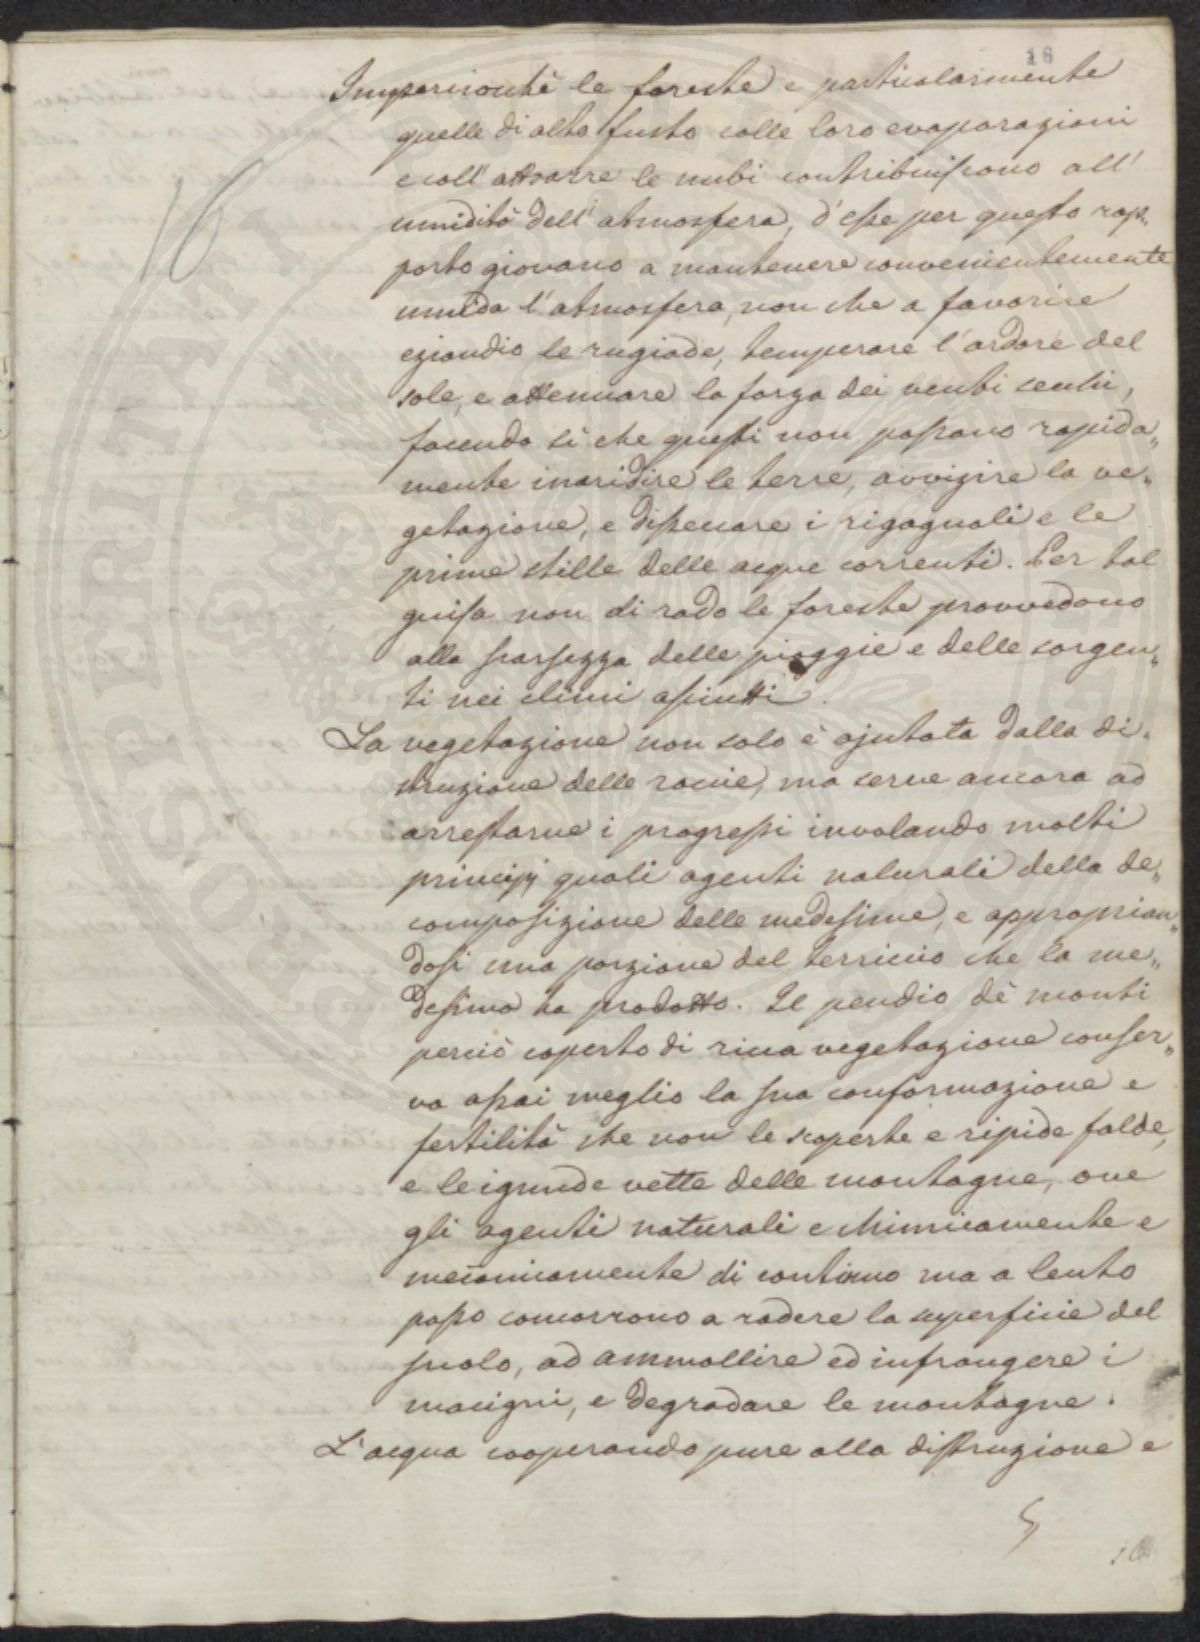 16
Imperciochè le foreste e particolarmente
quelle di alto fusto colle loro evaporazioni
e coll'attrarre le nubi contribuiscono all'
umidità dell'atmosfera, d'esse per questo rap-
porto giovano a mantenere convenientemente
umida l'atmosfera, non che a favorire
eziandio le rugiade, temperare l'ardore del
sole, e attenuare la forza dei venti secchi,
facendo sì che questi non possano rapida„
mente inaridire le terre, avvizire la ve„
getazione, e disseccare i rigagnoli e le
prime stille delle acque correnti. Per tal
guisa non di rado le foreste provvedono
alla scarsezza delle pioggie e delle sorgen„
ti nei climi asciutti.
La vegetazione non solo è ajutata dalla di„
struzione delle roccie, ma serve ancora ad
arrestarne i progressi involando molti
principj quali agenti naturali della de„
composizione delle medesime, e approprian„
dosi una porzione del terriccio che la me„
desima ha prodotto. Il pendio de' monti
perciò coperto di ricca vegetazione conser„
va assai meglio la sua conformazione e
fertilità che non le scoperte e ripide falde,
e le ignude vette delle montagne, ove
gli agenti naturali e chimicamente e
meccanicamente di continuo ma a lento
passo concorrono a radere la superficie del
suolo, ad ammollire ed infrangere i
macigni, e degradare le montagne.
L'acqua cooperando pure alla distruzione e
16
16
PROSPERITATI